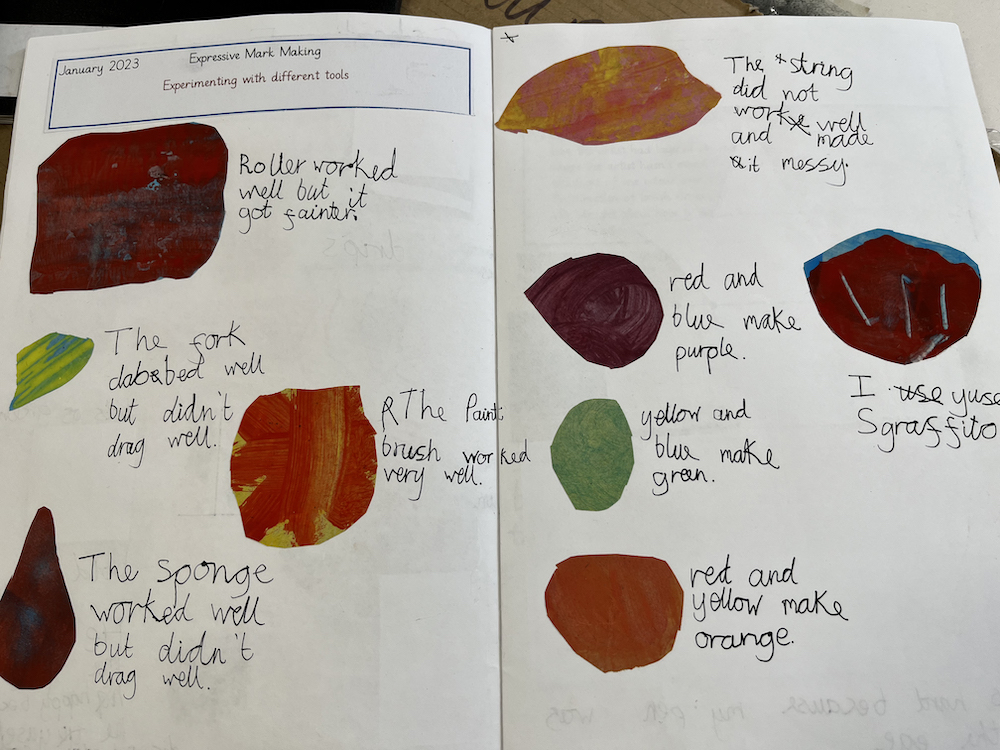 January 2023
Expressive Mark Making
Experimenting with different tools
Roller worked
well but it
got fainter.
The fork
dabbed well
but didn't
drag well.
The Paint
brush worked
very well.
The Sponge
worked well
but didn't
drag well.
The string
did not
work well
and made
it messy.
red and
blue make
purple.
I use yuse
Sgraffito
yellow and
blue make
green.
red and
yellow make
orange.